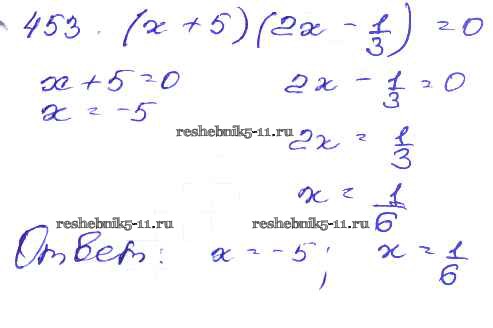 453. (x + 5)(2x - 1/3) = 0
x + 5 = 0 2x - 1/3 = 0
x = -5
reshebnik5-11.ru
2x = 1/3
x = 1/6
reshebnik5-11.ru reshebnik5-11.ru
Ответ: x = -5; x = 1/6